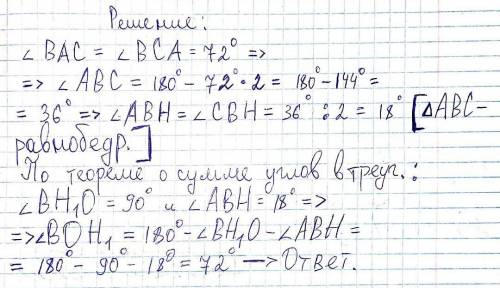 Решение:
∠BAC = ∠BCA = 72° =>
=> ∠ABC = 180° - 72°·2 = 180° - 144° =
= 36° => ∠ABH = ∠CBH = 36° : 2 = 18° [△ABC-
равнобедр.]
По теореме о сумме углов в треуг.:
∠BH₁O = 90° и ∠ABH = 18° =>
=> ∠BOH₁ = 180° - ∠BH₁O - ∠ABH =
= 180° - 90° - 18° = 72° —> Ответ.